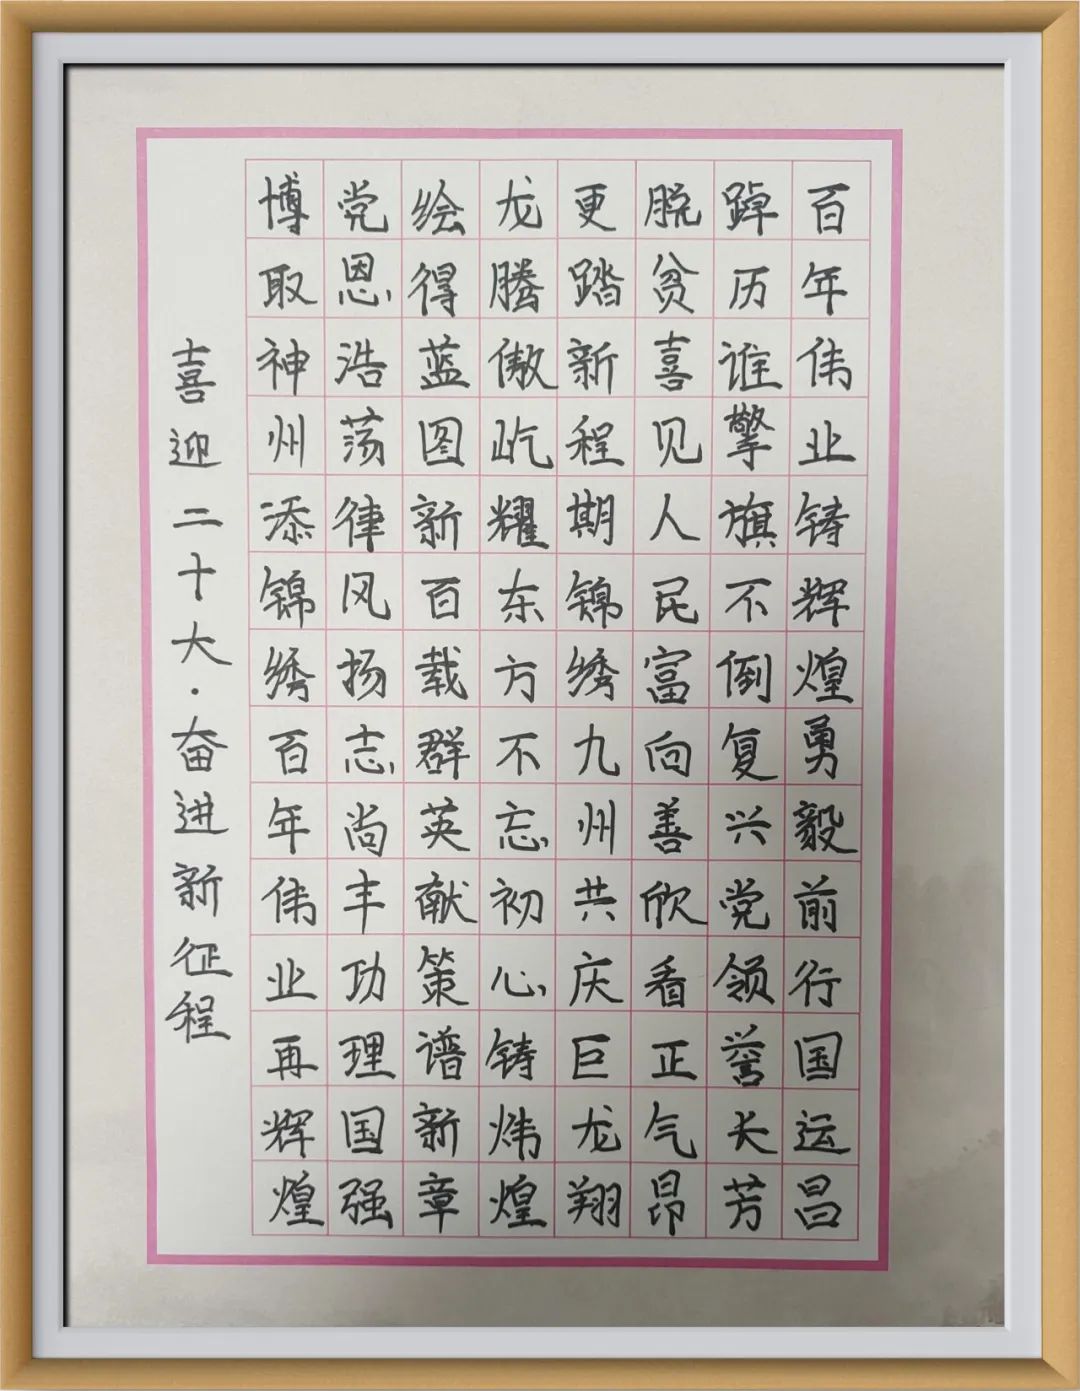 百年伟业铸辉煌勇毅前行国运昌
踔历谁擎旗不倒复兴党领誉长芳
脱贫喜见人民富向善欣看正气昂
更踏新程期锦绣九州共庆巨龙翔
龙腾傲屹耀东方不忘初心铸炜煌
绘得蓝图新百载群英献策谱新章
党恩浩荡律风扬志尚丰功理国强
博取神州添锦绣百年伟业再辉煌
喜迎二十大·奋进新征程